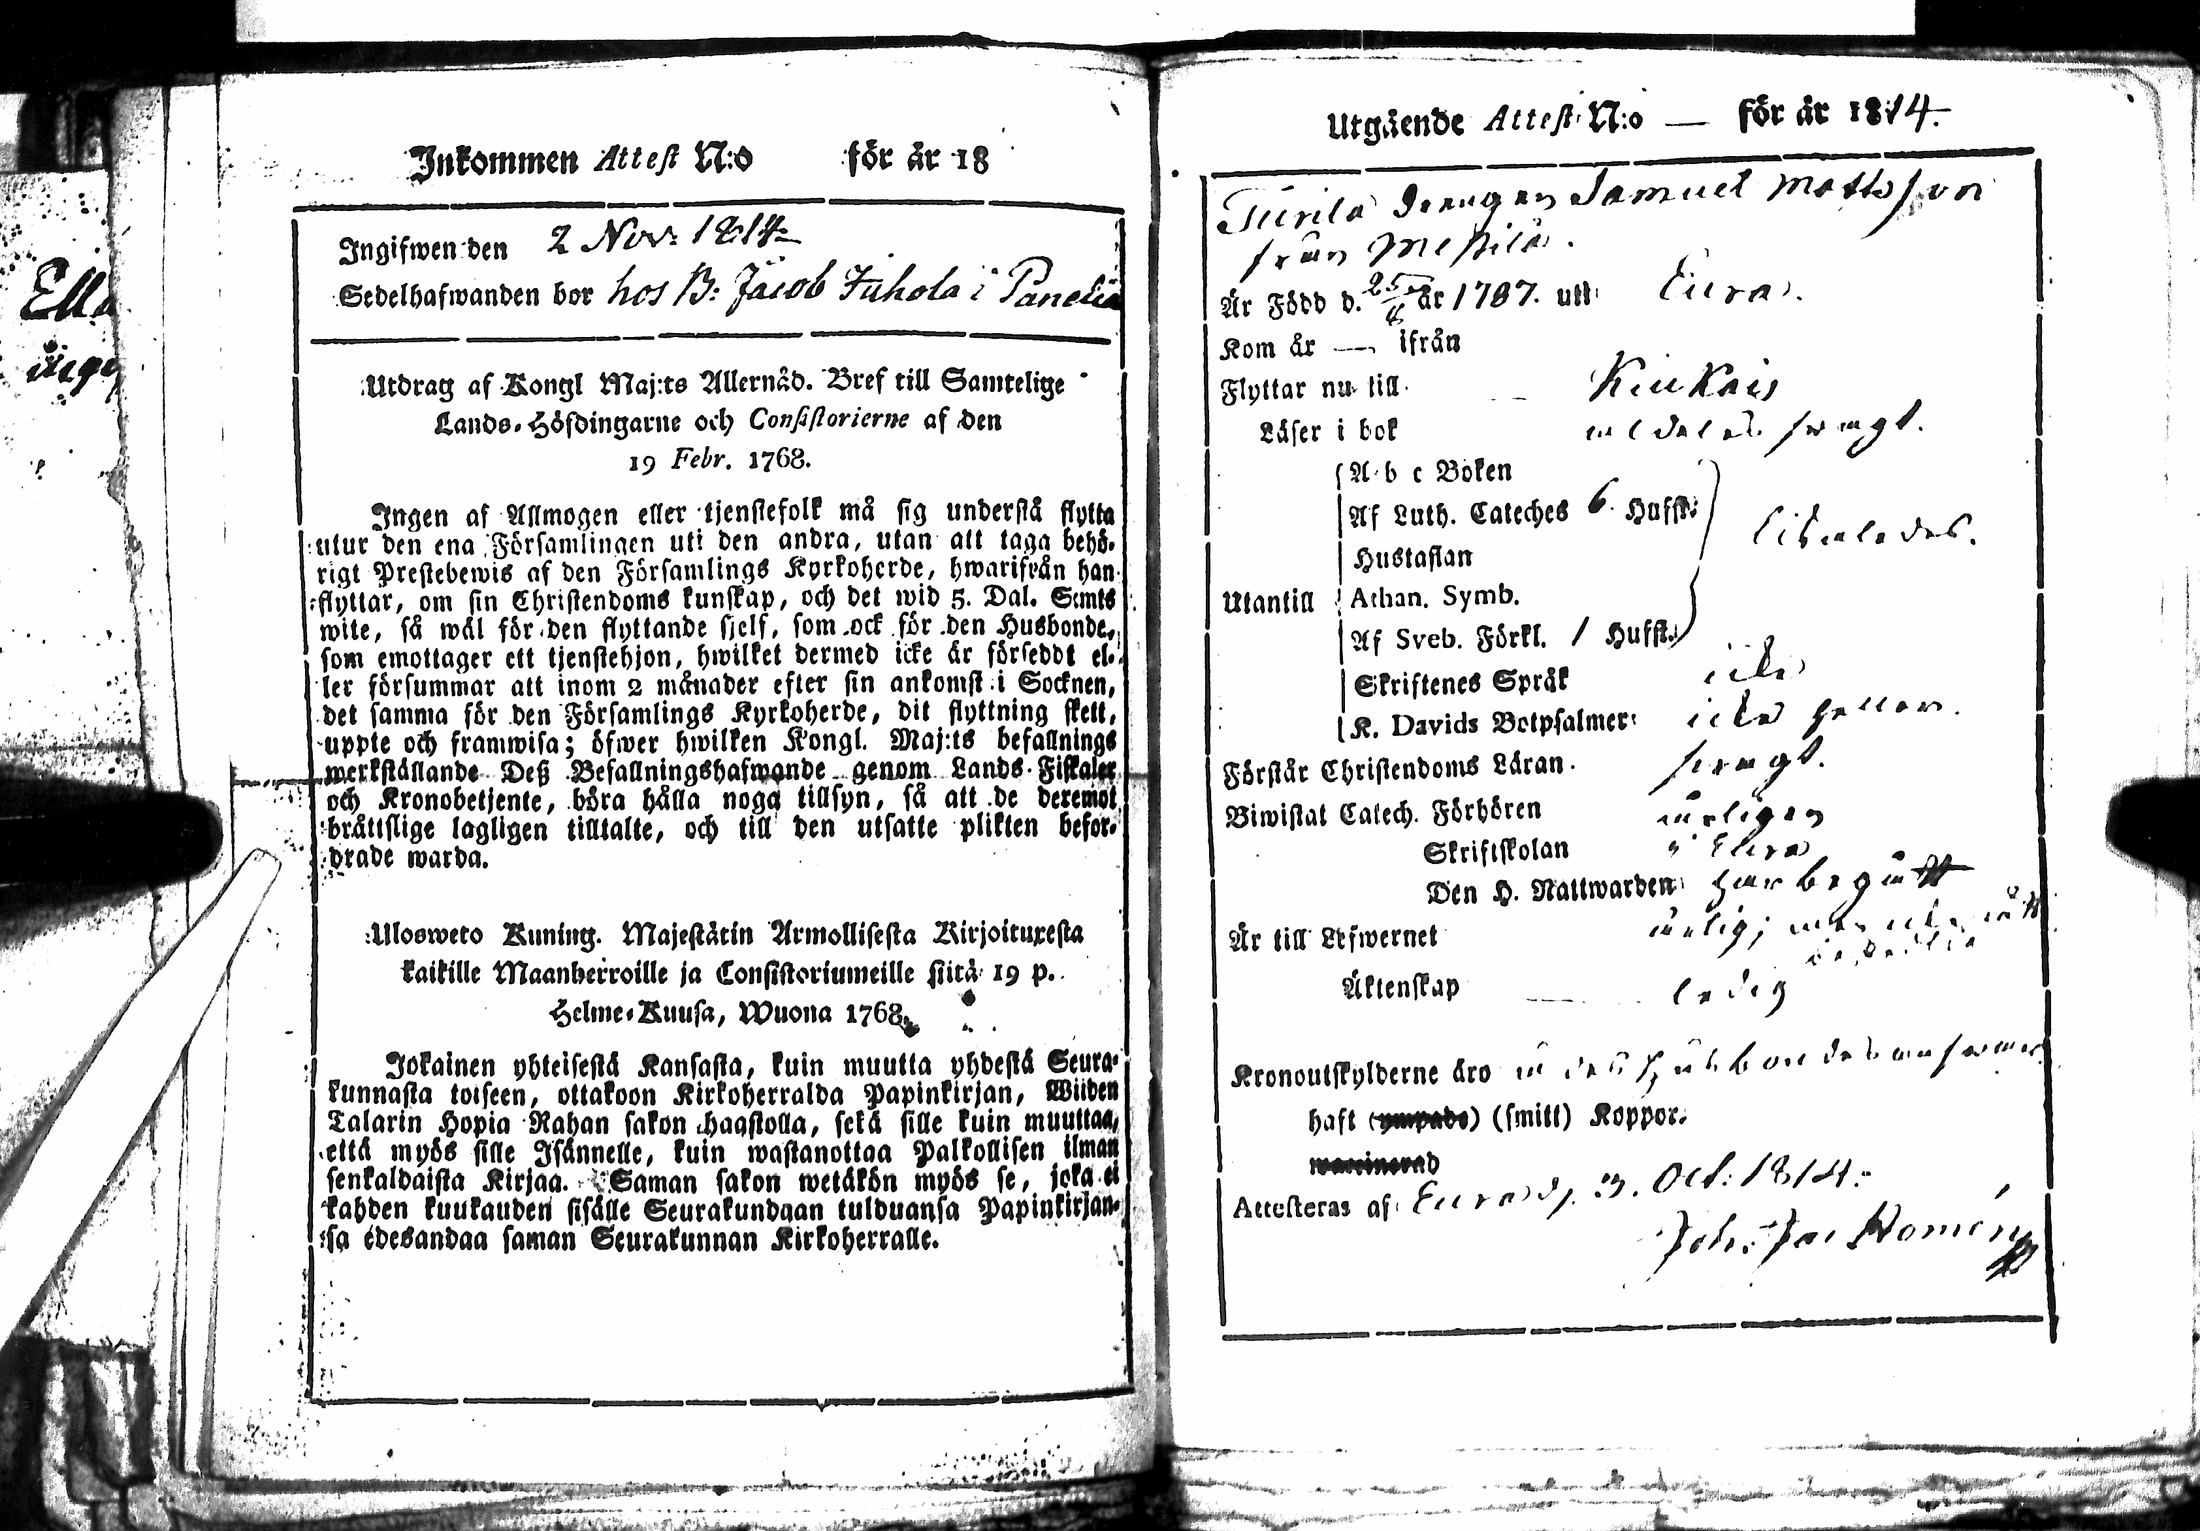 Ella
Inkommen Attest N:o för år 18
Ingifwen den 2 Nov: 1814
Sedelhafwanden bor hos B: Jacob Juhola i Panelia
Utdrag af Kongl Maj:ts Allernåd. Bref till Samtelige
Lands-Höfdingarne och Consistorierne af den
19 Febr. 1768.
Ingen af Allmogen eller tjenstefolk må sig understå flytta
utur den ena Församlingen uti den andra, utan att taga behö-
rigt Prestebewis af den Församlings Kyrkoherde, hwarifrån han
flyttar, om sin Christendoms kunskap, och det wid 5. Dal. S:mts
wite, så wäl för den flyttande sjelf, som ock för den Husbonde,
som emottager ett tjenstehjon, hwilket dermed icke är försedt el-
ler försummar att inom 2 månader efter sin ankomst i Socknen,
det samma för den Församlings Kyrkoherde, dit flyttning skett,
uppte och framwisa; öfwer hwilken Kongl. Maj:ts befallnings
werkställande Deß Befallningshafwande genom Lands-Fiskaler
och Kronobetjente, böra hålla noga tillsyn, så att de deremot
bråttslige lagligen tilltalte, och till den utsatte plikten befor-
drade warda.
Ulosweto Kuning. Majestätin Armollisesta Kirjoituxesta
kaikille Maanherroille ja Consistoriumeille siitä 19 p.
Helme-Kuusa, Wuona 1768.
Jokainen yhteisestä Kansasta, kuin muutta yhdestä Seura-
kunnasta toiseen, ottakoon Kirkoherralda Papinkirjan, Wiiden
Talarin Hopia Rahan sakon haastolla, sekä sille kuin muuttaa,
että myös sille Isännelle, kuin wastanottaa Palkollisen ilman
senkaldaista Kirjaa. Saman sakon wetäkön myös se, joka ei
kahden kuukauden sisälle Seurakundaan tulduansa Papinkirjan-
sa edesandaa saman Seurakunnan Kirkoherralle.
Utgående Attest N:o — för år 1814.
Turila drengen Samuel Mattsson
från Mestilä.
Är Född d. 25/8 år 1787. utt Eura.
Kom år — ifrån
Flyttar nu till Kiukais
Läser i bok alldeles swagt.
A b c Boken
Af Luth. Cateches 6. Hufst:
Hustaflan
Utantill Athan. Symb. likaledes.
Af Sveb. Förkl. 1 Hufst.
Skriftenes Språk icke
K. Davids Botpsalmer icke heller.
Förstår Christendoms Läran swagt.
Biwistat Catech. Förhören årligen
Skriftskolan i Eura
Den H. Nattwarden har begått
Är till Lefwernet ärlig; men icke
Äktenskap ledig
Kronoutskylderne äro
haft (ympade) (smitt) Koppor.
waccinerad
Attesteras af Eura d. 3. Oct: 1814.
Joh: Jac Homén